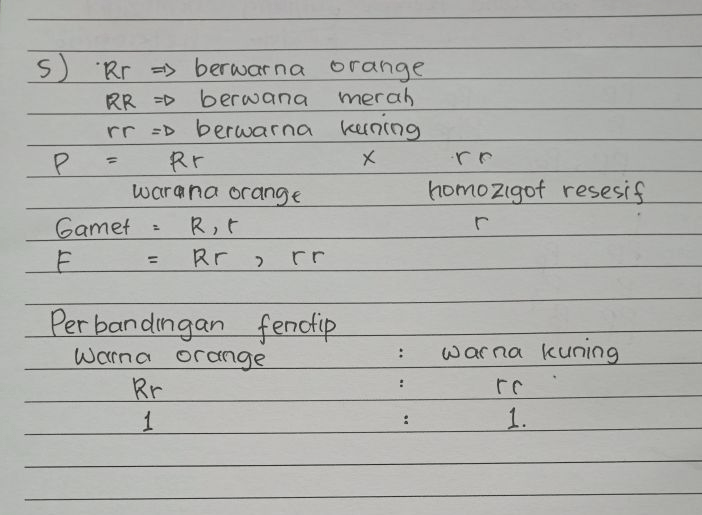 5) Rr => berwarna orange
RR => berwana merah
rr => berwarna kuning
P = Rr x rr
warana orange homozigot resesif
Gamet = R, r r
F = Rr , rr
Perbandingan fenotip
Warna orange : warna kuning
Rr : rr
1 : 1.